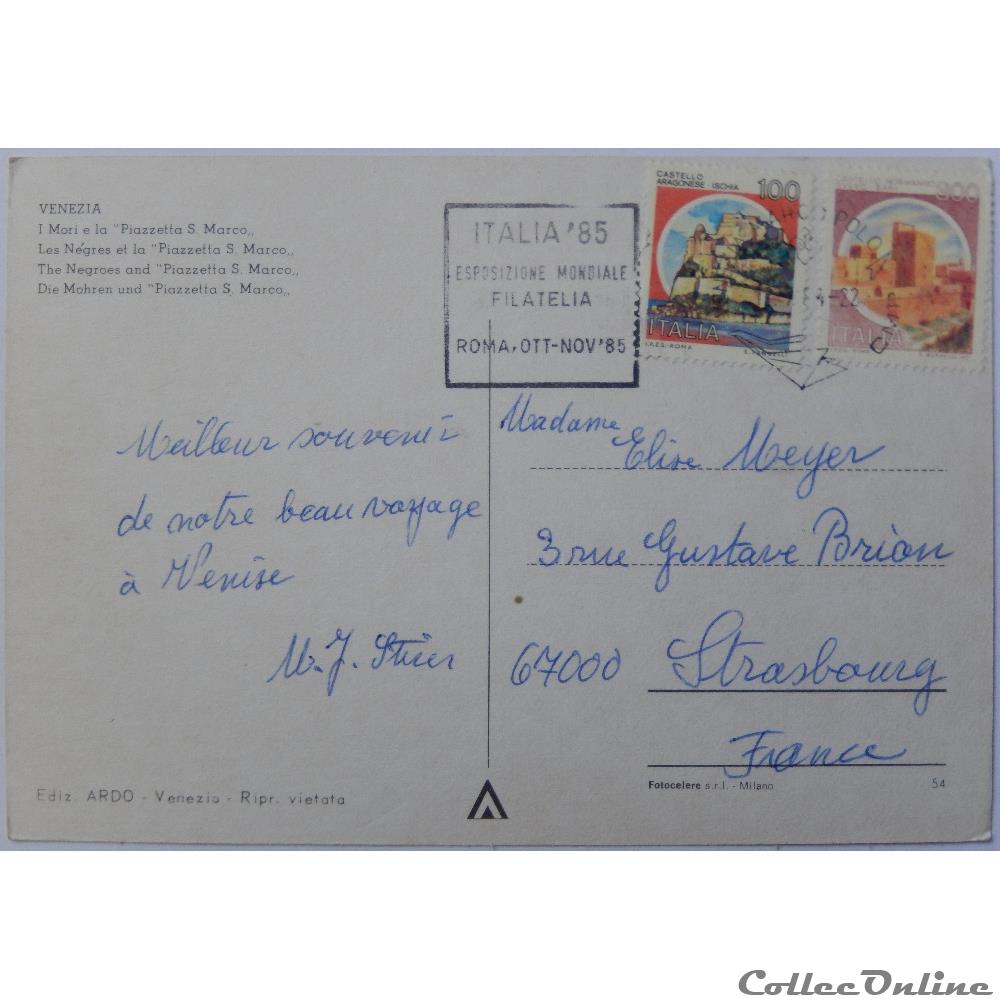 VENEZIA
I Mori e la "Piazzetta S. Marco,,
Les Négres et la "Piazzetta S. Marco,,
The Negroes and "Piazzetta S. Marco,,
Die Mohren und "Piazzetta S. Marco,,
ITALIA '85
ESPOSIZIONE MONDIALE
FILATELIA
ROMA, OTT-NOV '85
CASTELLO
ARAGONESE - ISCHIA
100
ITALIA
I.P.Z.S. - ROMA
300
ITALIA
Meilleur souvenir
de notre beau voyage
à Venise
M. J. Stier
Madame
Elise Meyer
3 rue Gustave Brion
67000 Strasbourg
France
Ediz. ARDO - Venezia - Ripr. vietata
Fotocelere s.r.l. - Milano
54
CollecOnline